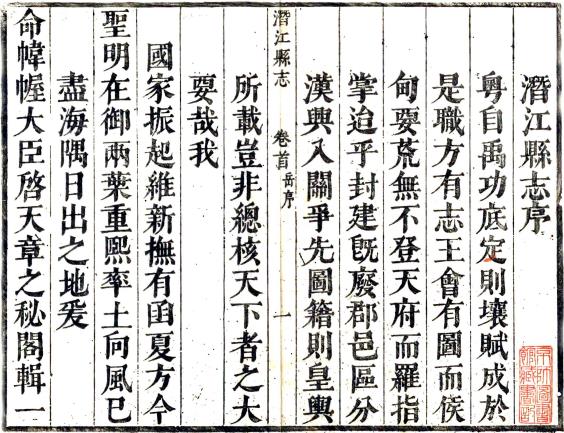 潛江縣志序
粵自禹功底定則壤賦成於
是職方有志王會有圖而侯
甸要荒無不登天府而羅指
掌迨乎封建旣廢郡邑區分
漢興入關爭先圖籍則皇輿
潛江縣志 卷首 岳序 一
所載豈非總核天下者之大
要哉我
國家振起維新撫有函夏方今
聖明在御兩葉重熙率土向風巳
盡海隅日出之地爰
命幃幄大臣啓天章之秘閣輯一